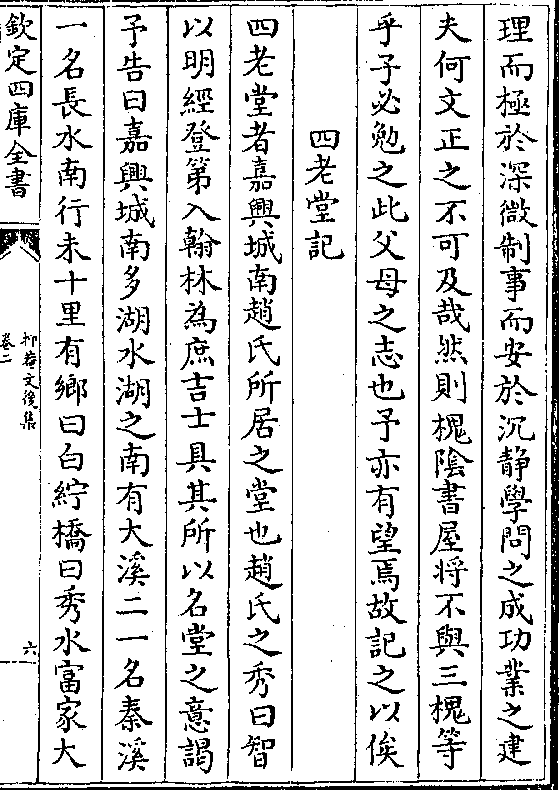 理而極於深微制事而安於沉靜學問之成功業之建
夫何文正之不可及哉然則槐陰書屋将不與三槐等
乎子必勉之此父母之志也予亦有望焉故記之以俟
四老堂記
四老堂者嘉興城南趙氏所居之堂也趙氏之秀曰智
以明經登第入翰林為庶吉士具其所以名堂之意謁
予告曰嘉興城南多湖水湖之南有大溪二一名秦溪
一名長水南行未十里有鄉曰白紵橋曰秀水富家大
欽定四庫全書
抑菴文後集
卷二
六